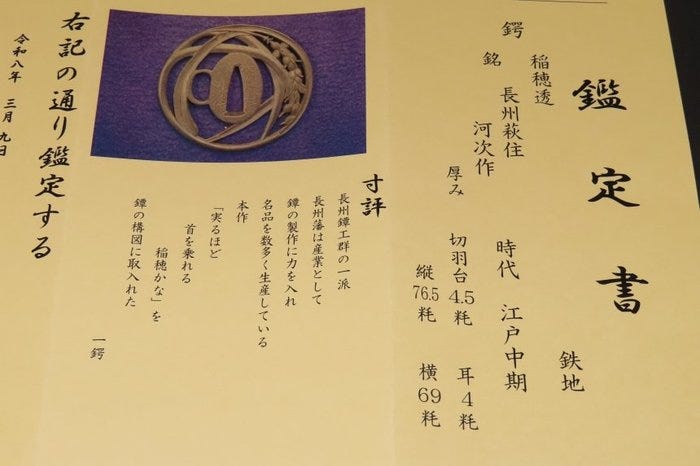 鑑定書
鉄地
稲穂透
鍔
銘 長州萩住
河次作
時代 江戸中期
厚み 切羽台4.5粍 耳4粍
縦76.5粍 横69粍
寸評
長州鐔工群の一派
長州藩は産業として
鐔の製作に力を入れ
名品を数多く生産している
本作
「実るほど
首を乗れる
稲穂かな」を
鐔の構図に取入れた
一鍔
右記の通り鑑定する
令和八年 三月九日